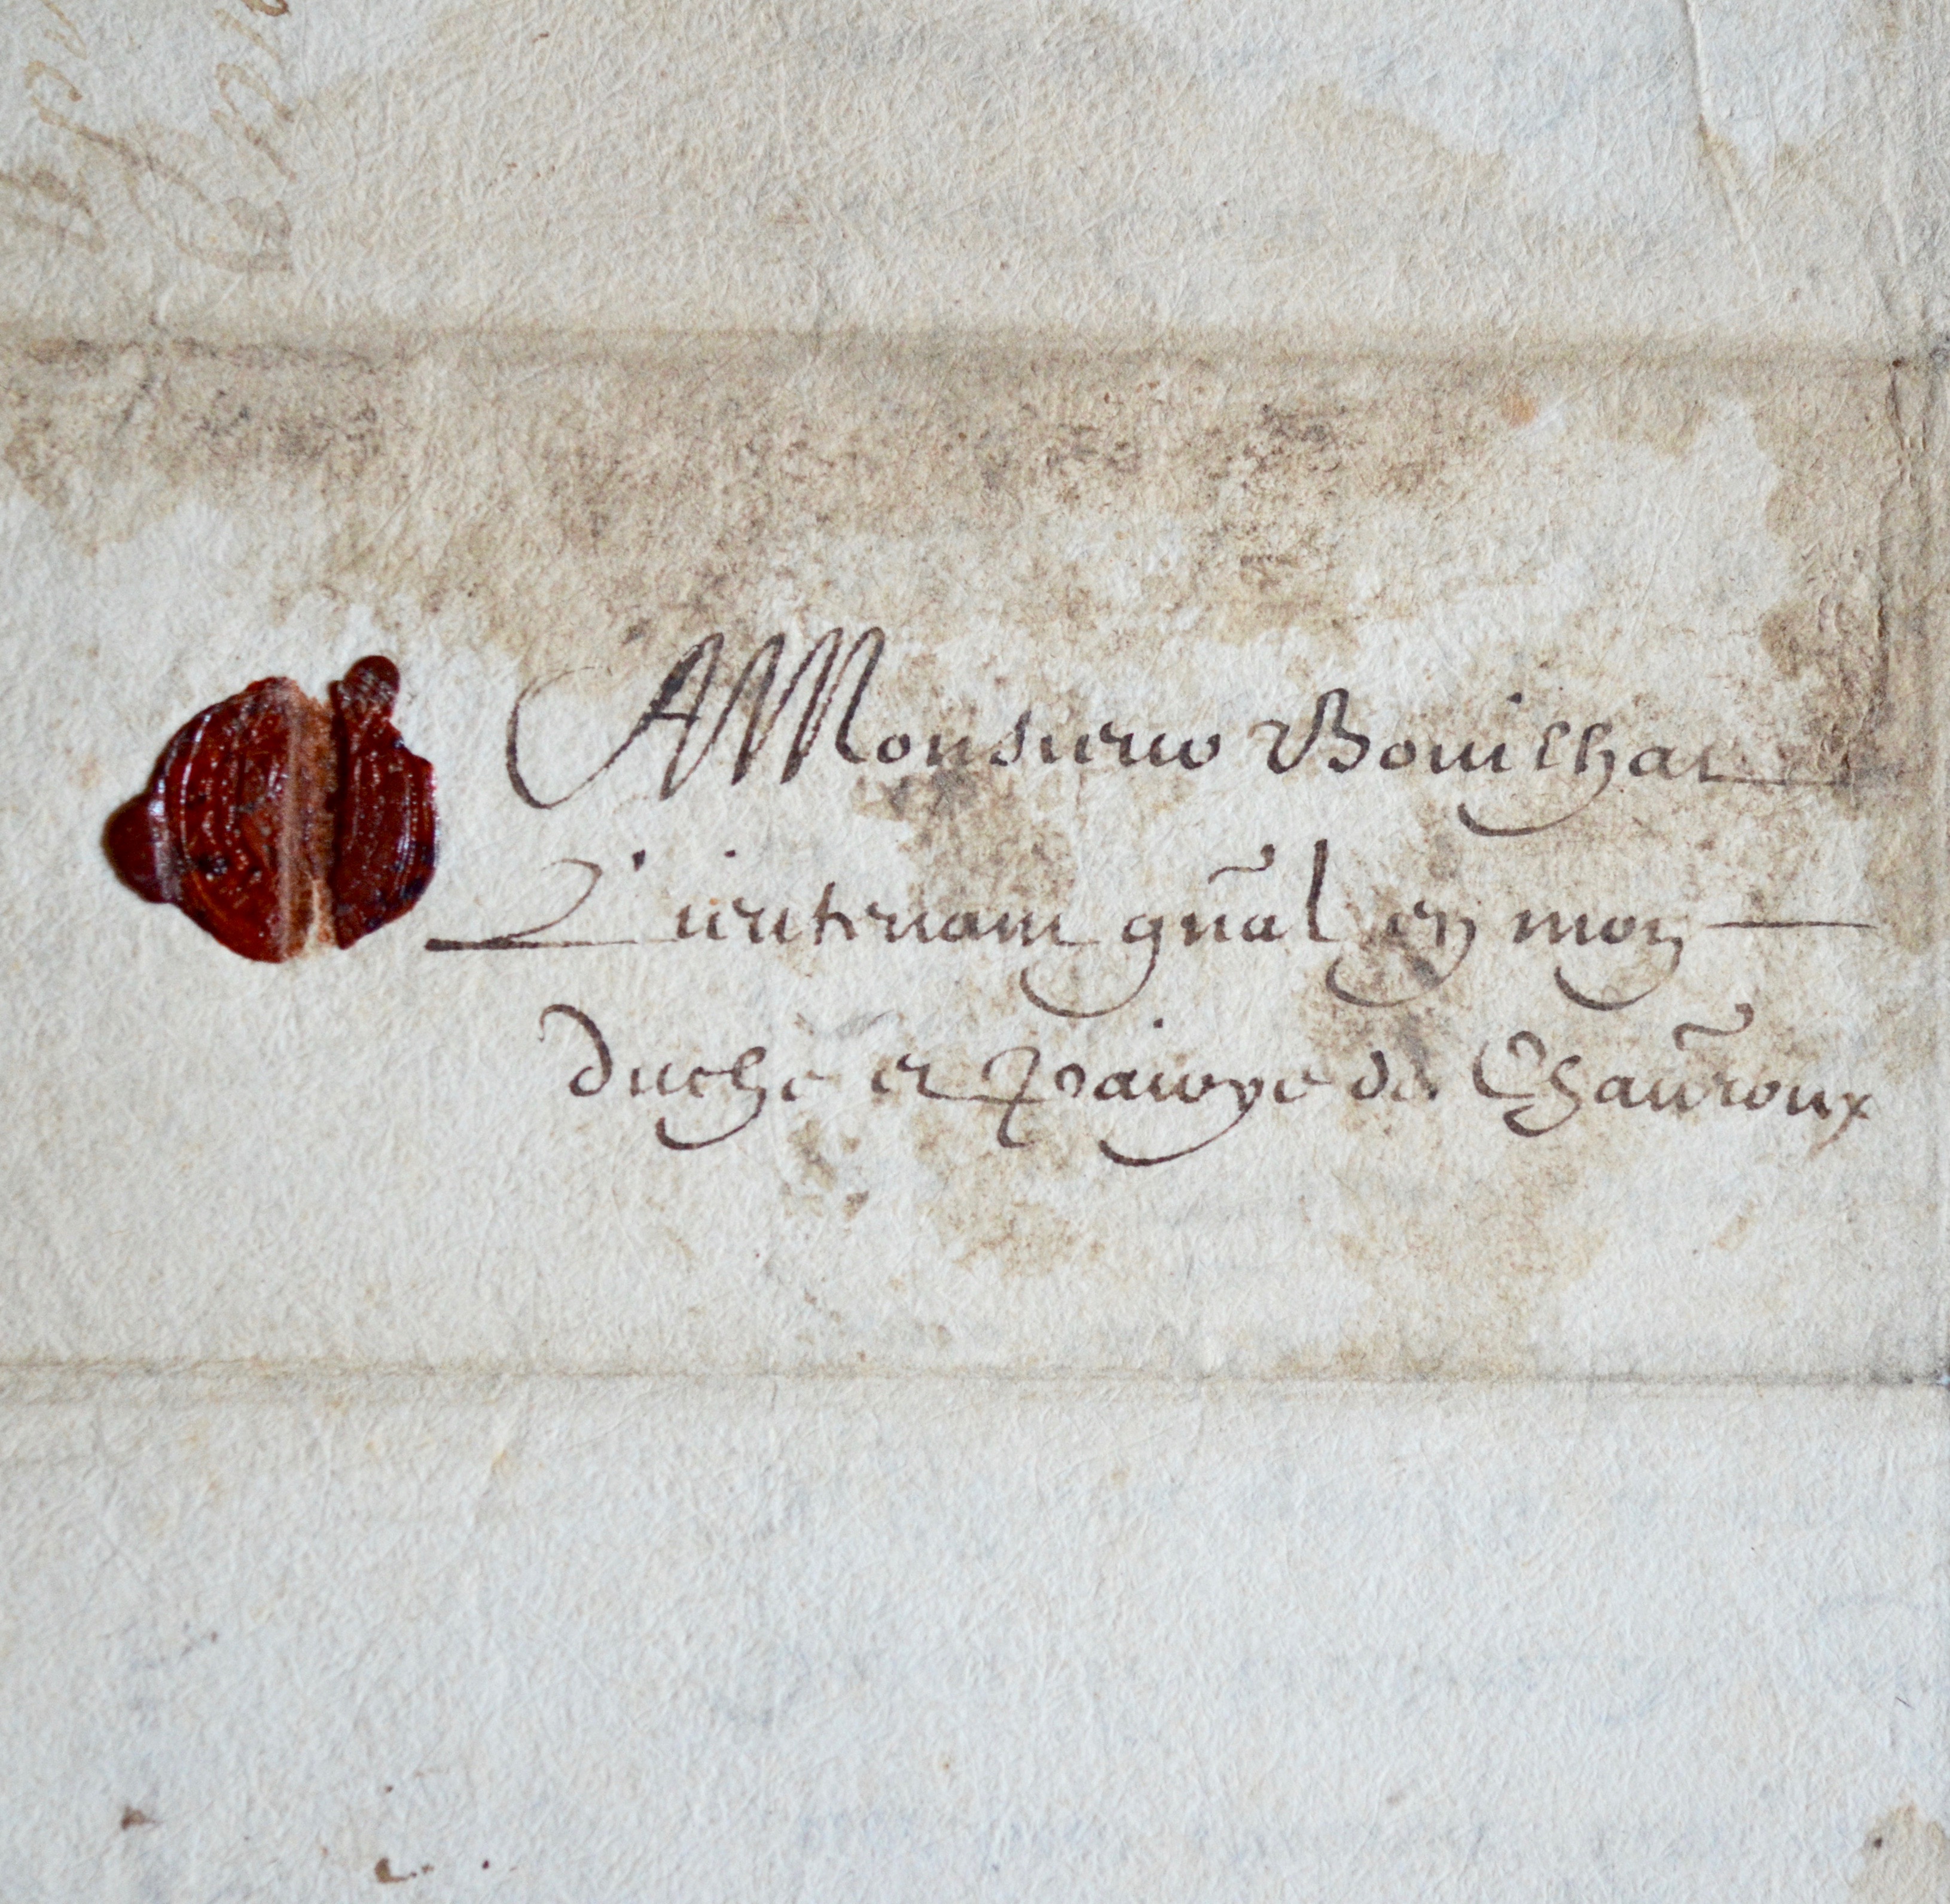 A Monsieur Bouilhat
Lieutenant gñal en mon
duché et pairye de Chaũroux